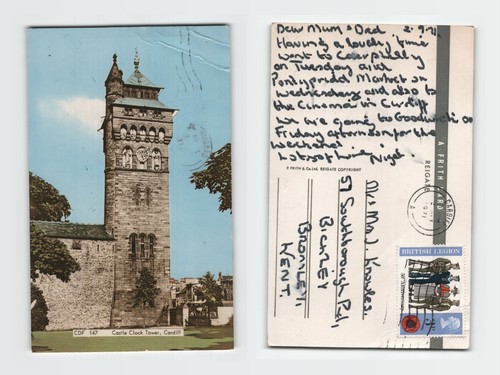 CDF 147 Castle Clock Tower, Cardiff
Dear Mum & Dad 2.9.71
Having a lovely time
went to Caerphilly
on Tuesday and
Pontypridd Market on
Wednesday and also to
the Cinema in Cardiff
We are going to Goodwick on
Friday afternoon for the
weekend
Lots of love Nigel
F FRITH & Co Ltd. REIGATE COPYRIGHT
A FRITH CARD
REIGATE
Mr & Mrs J. Knowles
57 Southborough Rd,
BICKLEY
BROMLEY
KENT
BRITISH LEGION